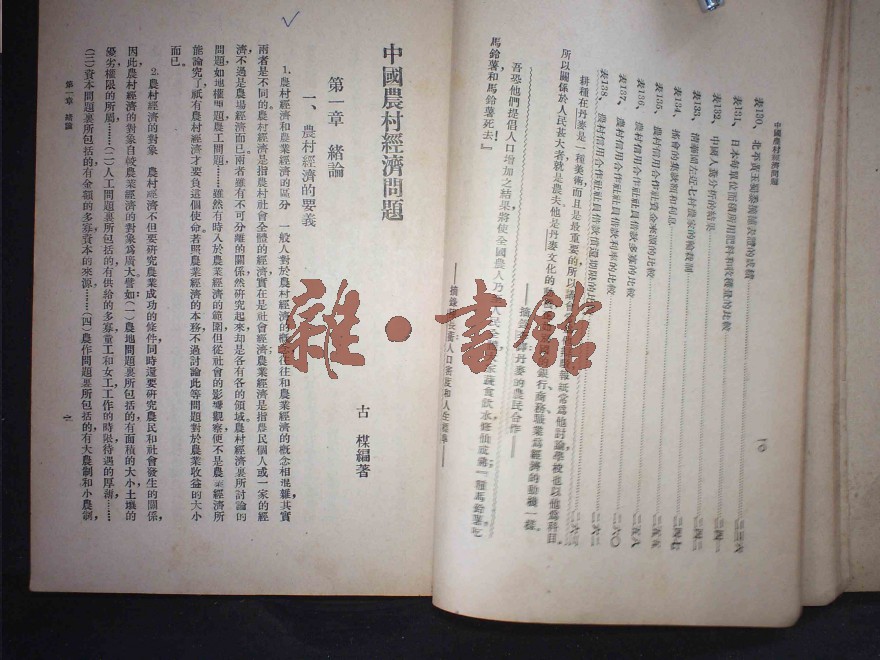 中國農村經濟問題
一〇
表130.
表131. 日本每單位面積所用肥料和收穫量的比較
表132. 中國人糞分析的結果
表133. 清華園左近七村農家的輪栽制
表134. 搖會的集款額和利息
表135. 農村信用合作社社資金來源的比較
表136. 農村信用合作社社員借款多寡的比較
表137. 農村信用合作社社員借款利率的比較
表138. 農村信用合作社社員借款償還期限的比較
耕種在丹麥是一種美術而且是最重要的所以報紙常爲他討論學校也以他爲科目。
所以關係於人民甚大者就是農夫。他是丹麥文化的銀行、商務、職業爲經濟的動機一樣。
丹麥的農民合作——
吾恐他們提倡人口增加之結果將使全國農人乃至人民全蔬食飲水
馬鈴薯和馬鈴薯死去』!
人口密度和人生標準——
中國農村經濟問題
古楳編著
第一章 緒論
一、農村經濟的要義
1. 農村經濟和農業經濟的區分 一般人對於農村經濟的概念往往和農業經濟的概念相混雜其實
兩者是不同的。農村經濟是指農村社會全體的經濟,實在是社會經濟;農業經濟是指農民個人或一家的經
濟不過是農場經濟而已。兩者雖有不可分離的關係,然研究起來却是各有各的領域。農村經濟裏所討論的
問題如地權問題農工問題……雖然有時入於農業經濟的範圍但從社會的影響觀察便不是農業經濟所
能論究了,祇有農村經濟才要負這個使命。若照農業經濟的本務,不過討論此等問題對於農業收益的大小
而已。
2. 農村經濟的對象 農村經濟不但要研究農業成功的條件,同時還要研究農民和社會發生的關係,
因此農村經濟的對象自較農業經濟的對象爲廣大。譬如(一)農地問題裏所包括的有面積的大小,土壤的
優劣,權限的所屬……(二)人工問題裏所包括的有供給的多寡,童工和女工工作的時限,待遇的厚薄……
(三)資本問題裏所包括的有金額的多寡,資本的來源……(四)農作問題裏所包括的有大農制和小農制,
第一章 緒論
一
雜·書館